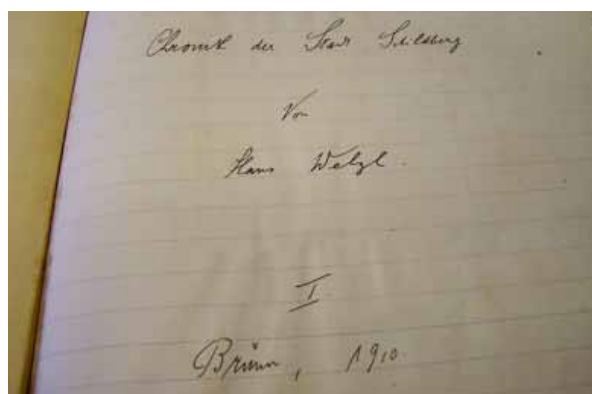 Chronik der Stadt Schildberg
Von
Hans Welzl.
I
Brünn, 1910.